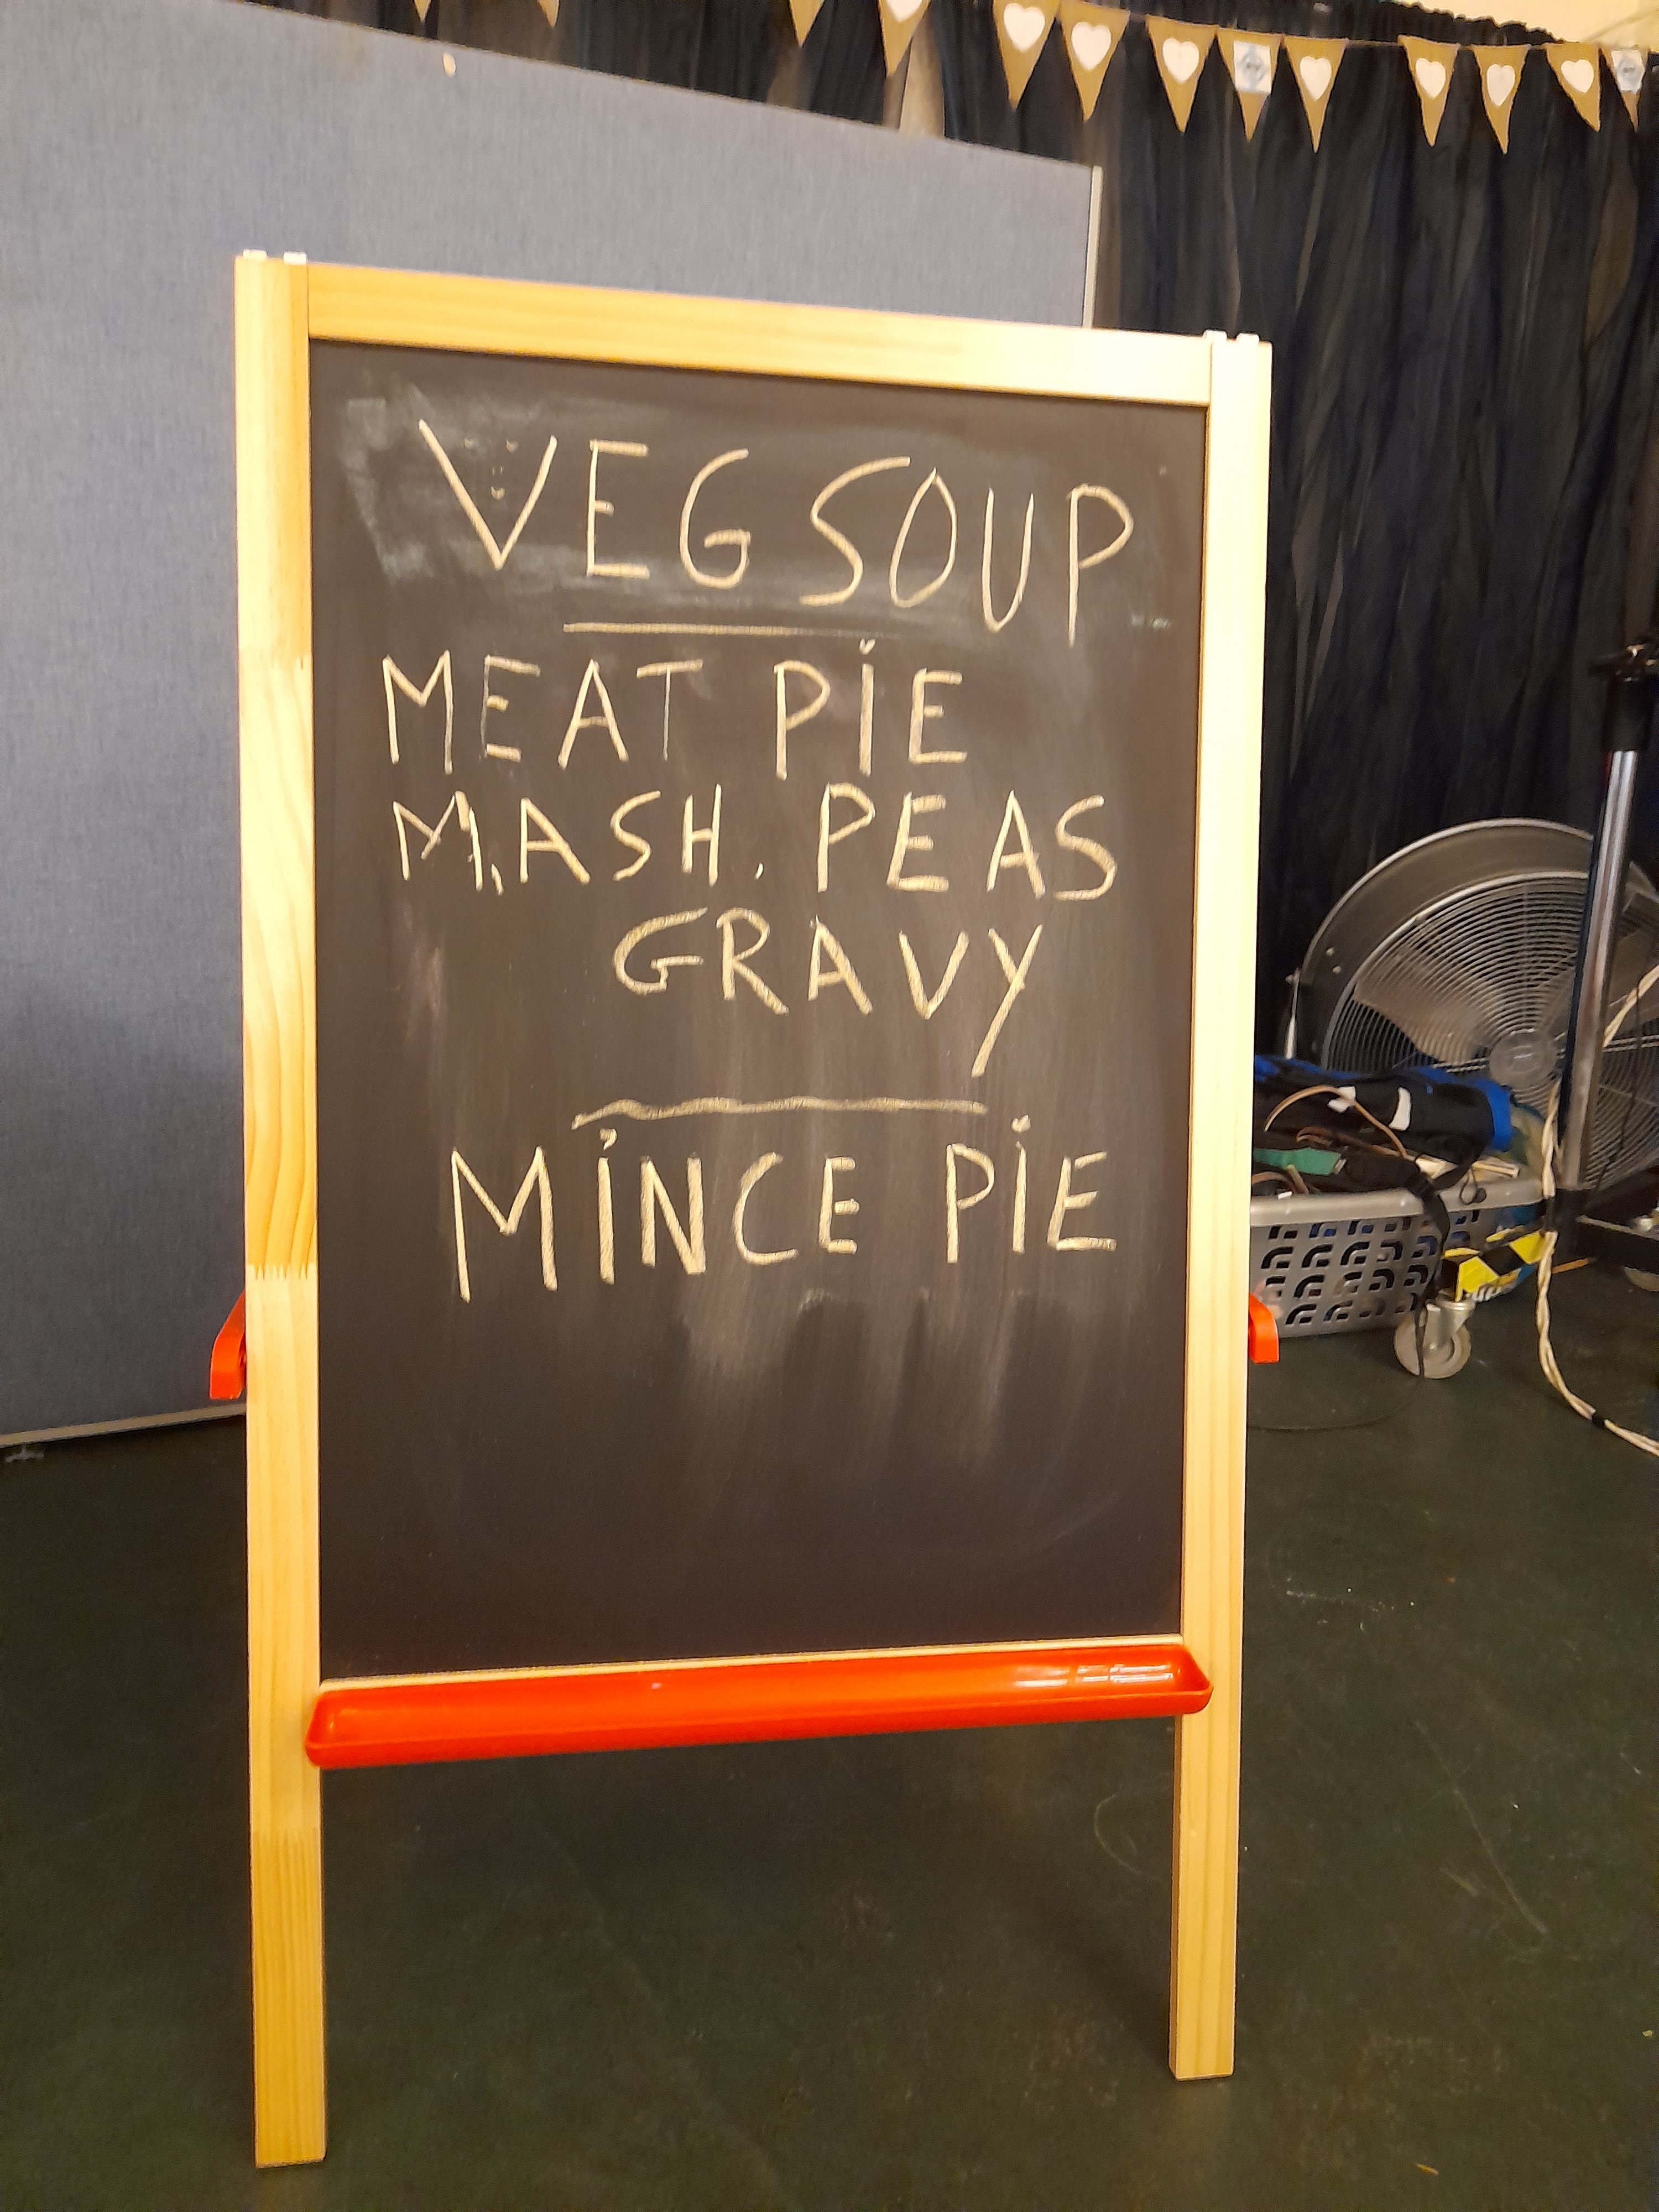 VEG SOUP
MEAT PIE
MASH. PEAS
GRAVY
MINCE PIE